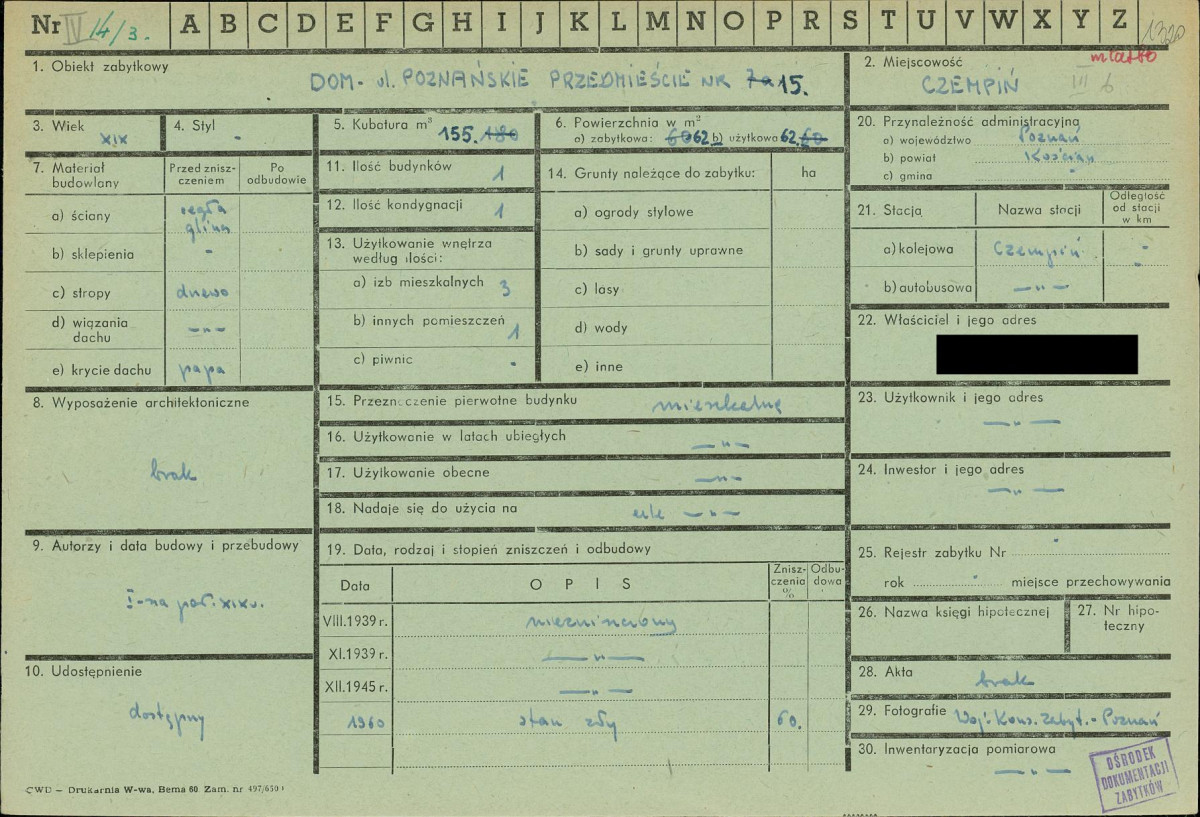 Nr IV 14/3. A B C D E F G H I J K L M N O P R S T U V W X Y Z 1320
1. Obiekt zabytkowy
DOM - ul. POZNAŃSKIE PRZEDMIEŚCIE NR 7a 15.
2. Miejscowość miasto
CZEMPIŃ III 6
3. Wiek
XIX
4. Styl
-
5. Kubatura m³
155. 180
6. Powierzchnia w m²
a) zabytkowa: 60 62 b) użytkowa 62, 60
7. Materiał budowlany
Przed zniszczeniem
Po odbudowie
a) ściany cegła
glina
b) sklepienia -
c) stropy drewo
d) wiązania dachu —„—
e) krycie dachu papa
8. Wyposażenie architektoniczne
brak
9. Autorzy i data budowy i przebudowy
I-na poł. XIX w.
10. Udostępnienie
dostępny
11. Ilość budynków 1
12. Ilość kondygnacji 1
13. Użytkowanie wnętrza
według ilości:
a) izb mieszkalnych 3
b) innych pomieszczeń 1
c) piwnic -
14. Grunty należące do zabytku: ha
a) ogrody stylowe
b) sady i grunty uprawne
c) lasy
d) wody
e) inne
15. Przeznaczenie pierwotne budynku mieszkalne
16. Użytkowanie w latach ubiegłych —„—
17. Użytkowanie obecne —„—
18. Nadaje się do użycia na cele —„—
19. Data, rodzaj i stopień zniszczeń i odbudowy
Data OPIS Zniszczenia % Odbudowa
VIII.1939 r. niezniszczony
XI.1939 r. —„—
XII.1945 r. —„—
1960 stan zły 60.
20. Przynależność administracyjna
a) województwo Poznań
b) powiat Kościan
c) gmina -
21. Stacja Nazwa stacji Odległość od stacji w km
a) kolejowa Czempiń -
b) autobusowa —„— -
22. Właściciel i jego adres
23. Użytkownik i jego adres
—„—
24. Inwestor i jego adres
—„—
25. Rejestr zabytku Nr -
rok - miejsce przechowywania
26. Nazwa księgi hipotecznej
27. Nr hipoteczny
28. Akta brak
29. Fotografie Woj. Kons. Zabyt. - Poznań
30. Inwentaryzacja pomiarowa
—„—
OŚRODEK
DOKUMENTACJI
ZABYTKÓW
CWD — Drukarnia W-wa, Bema 60. Zam. nr 497/650